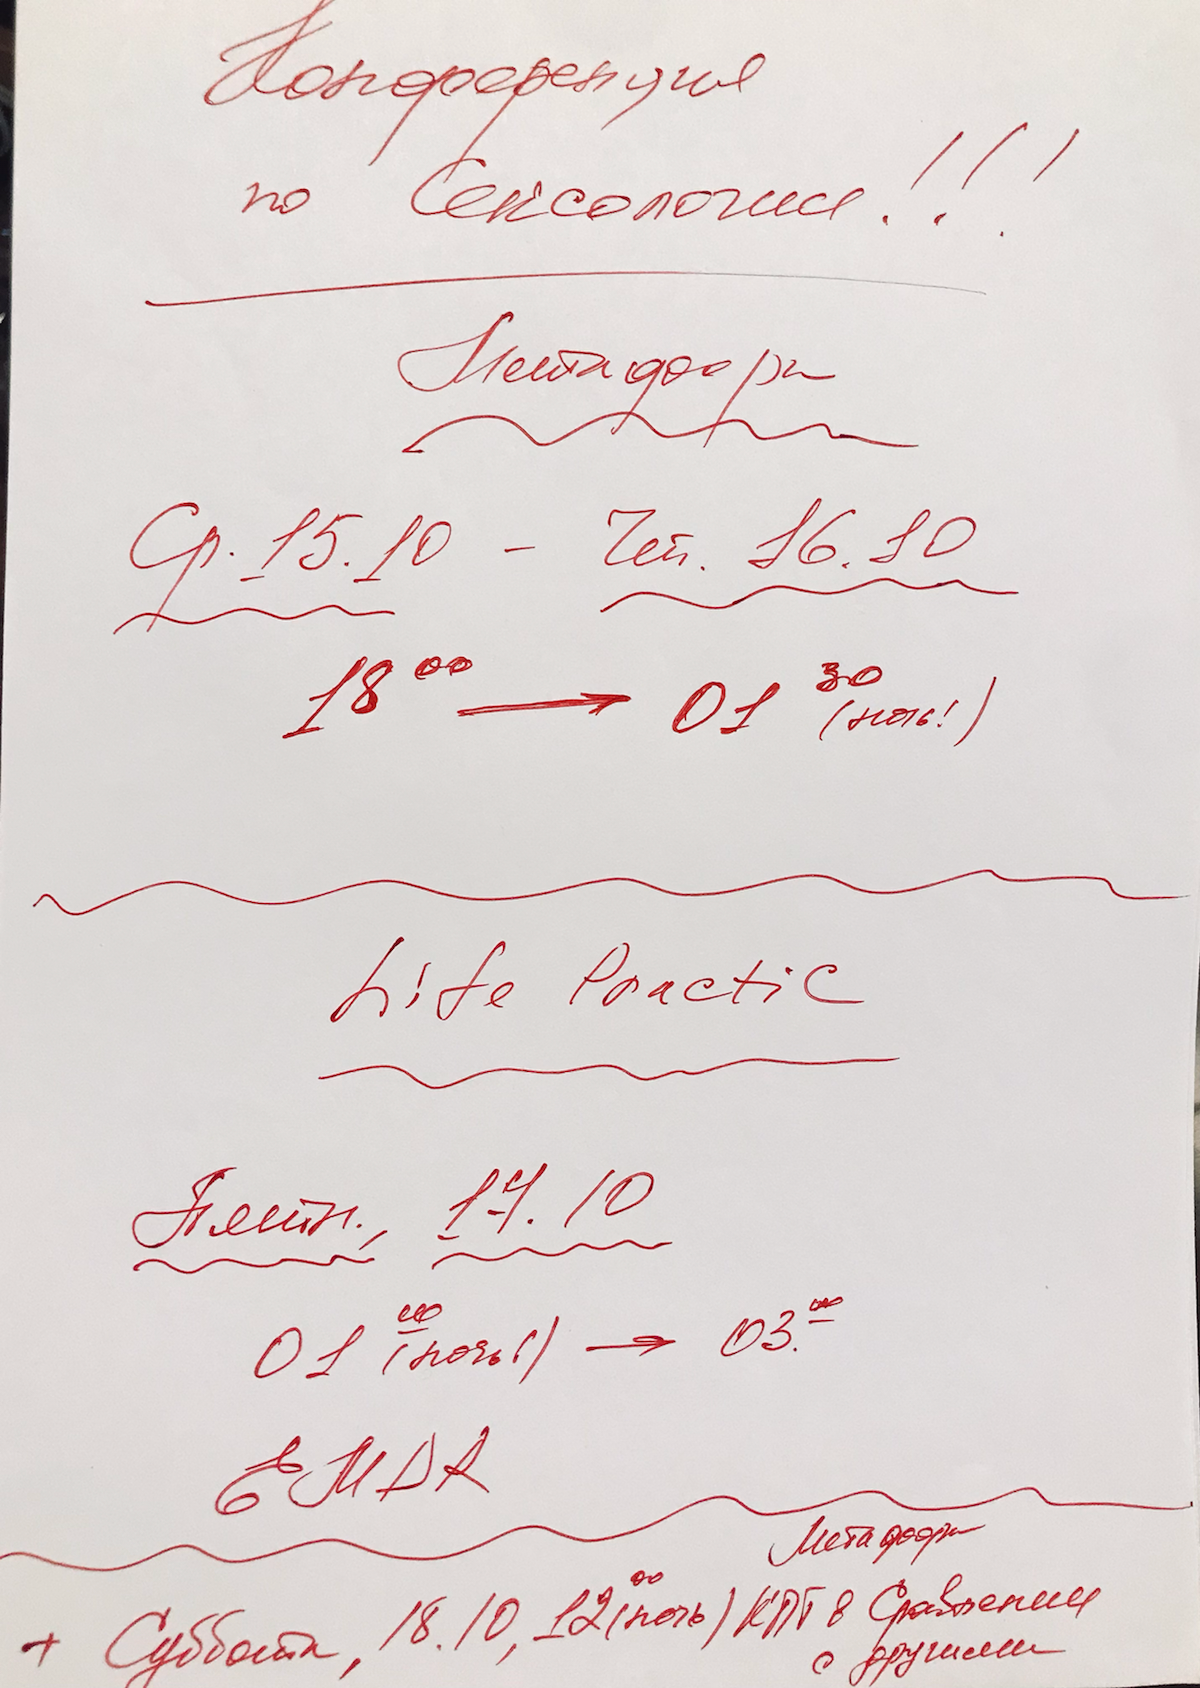 Конференция
по Сексологии!!!
Метафора
Ср. 15.10 – Чет. 16.10
18 00 → 01 30 (ночь!)
Life Practic
Пятн., 17.10
01 00 (ночь!) → 03. 00
EMDR
Метафора
+ Суббота, 18.10, 12 00 (ночь) КПТ в Сравнении
с другими